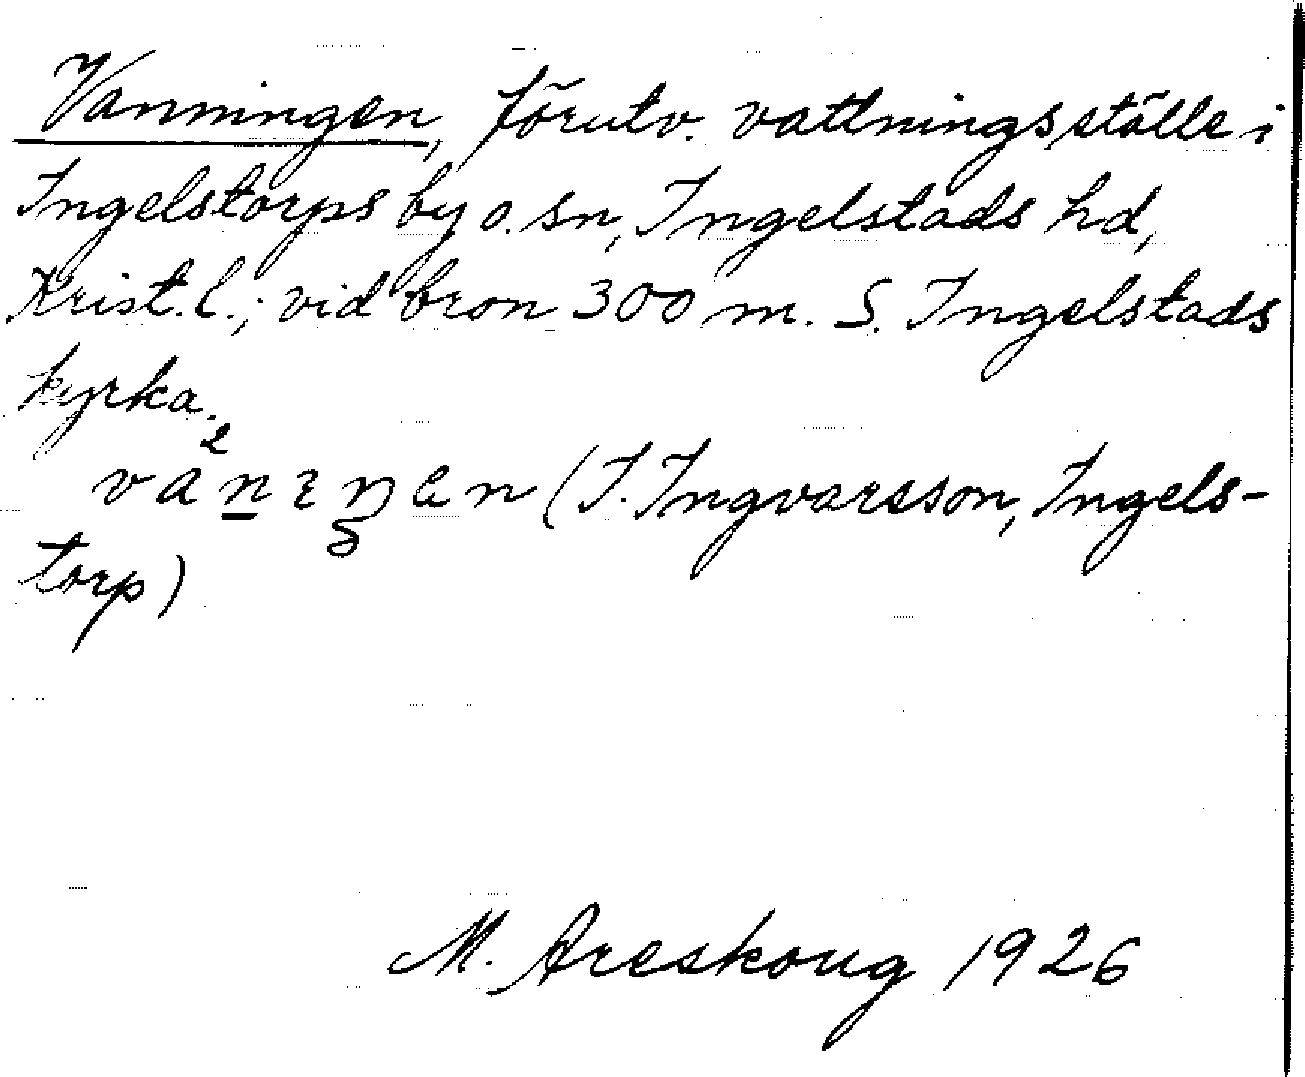 Vanningen, förutv. vattningsställe i
Ingelstorps by o. sn, Ingelstads hd,
Krist. l.; vid bron 300 m. S. Ingelstads
kyrka.
(I. Ingvarsson, Ingels-
torp)
M. Areskoug 1926